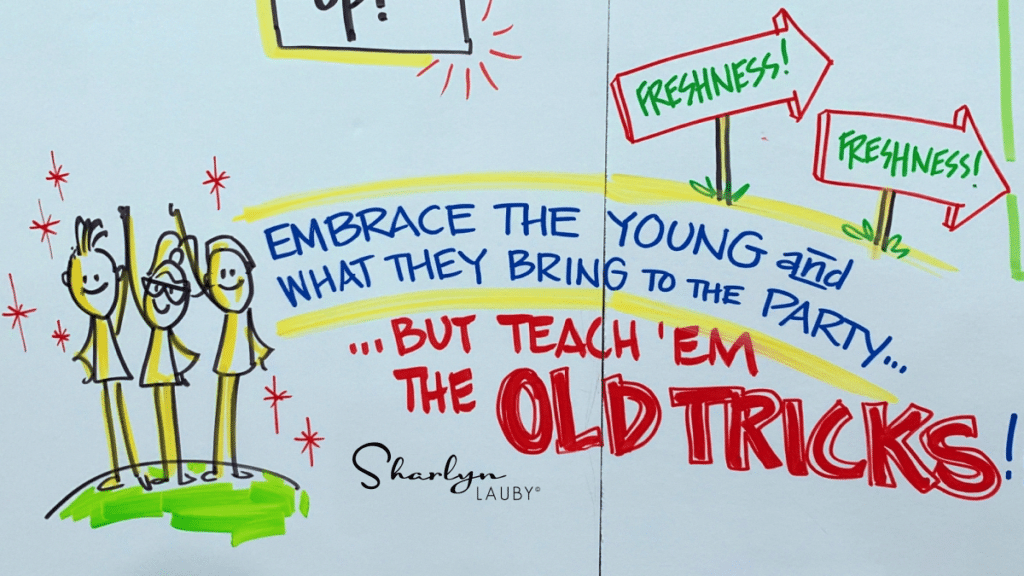 up!
FRESHNESS!
FRESHNESS!
EMBRACE THE YOUNG and
WHAT THEY BRING TO THE PARTY...
...BUT TEACH 'EM
THE OLD TRICKS!
Sharlyn
LAUBY©